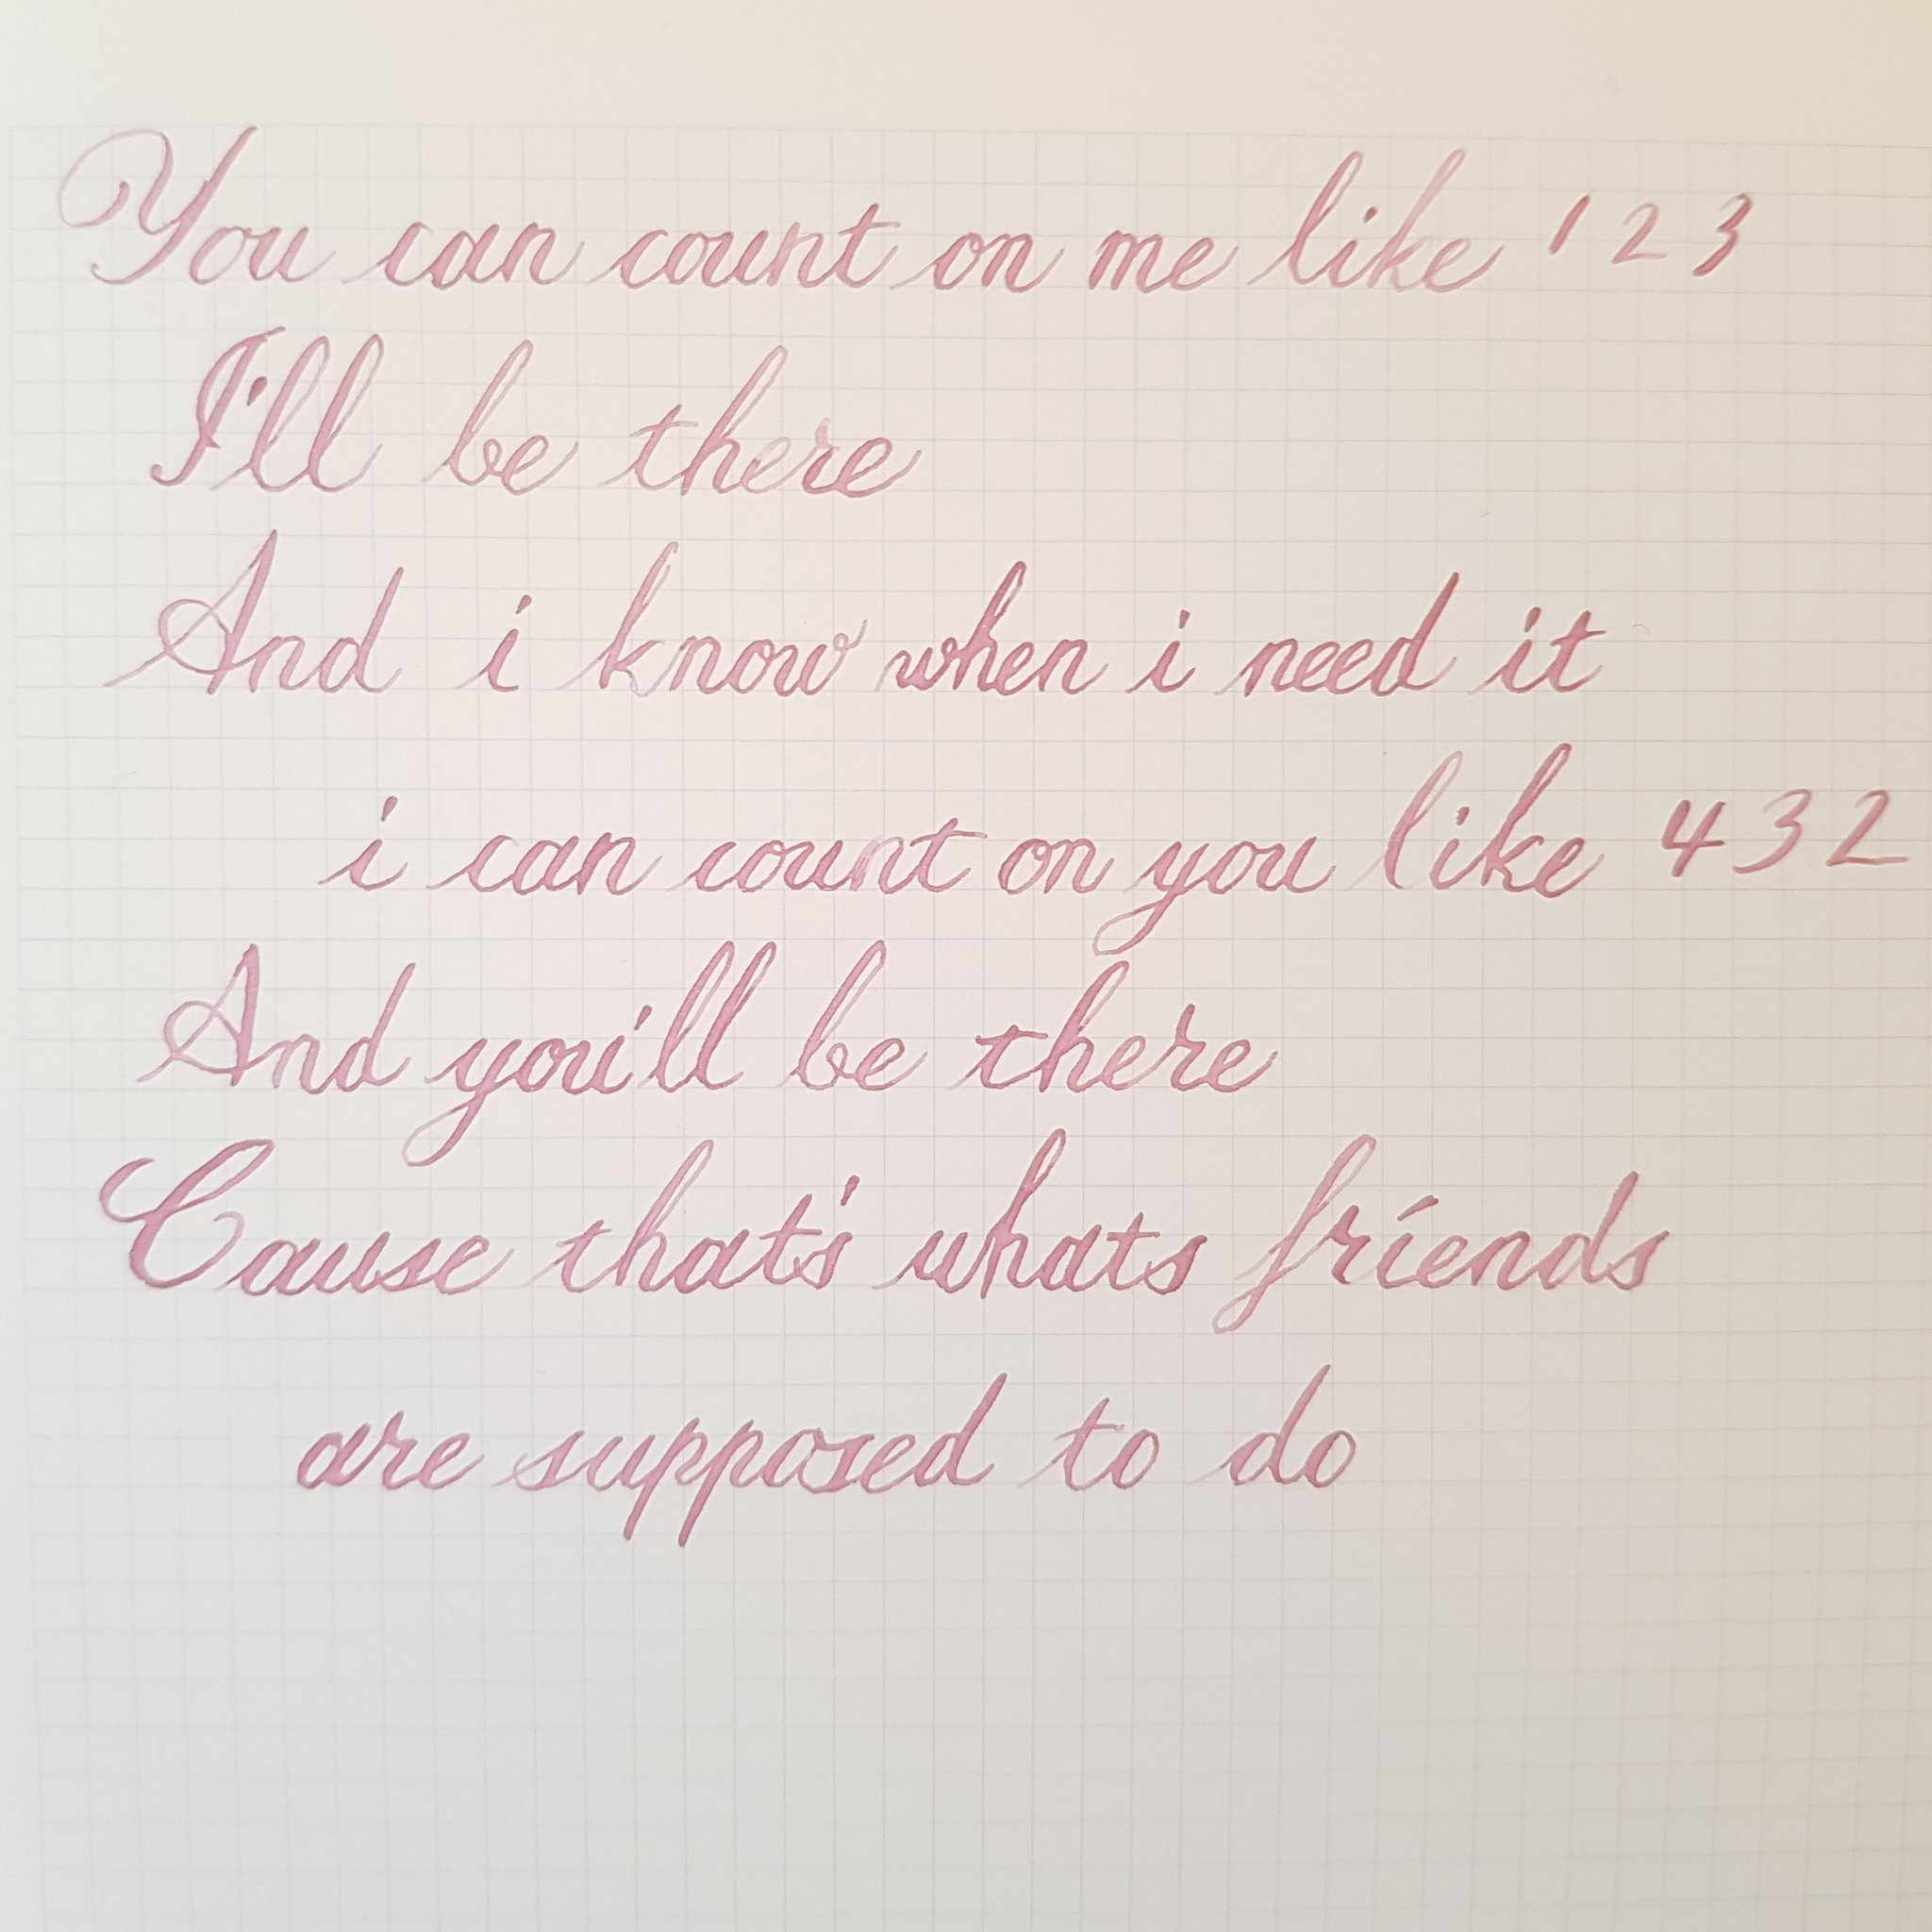 You can count on me like 1 2 3
I'll be there
And i know when i need it
i can count on you like 4 3 2
And you'll be there
Cause that's whats friends
are supposed to do